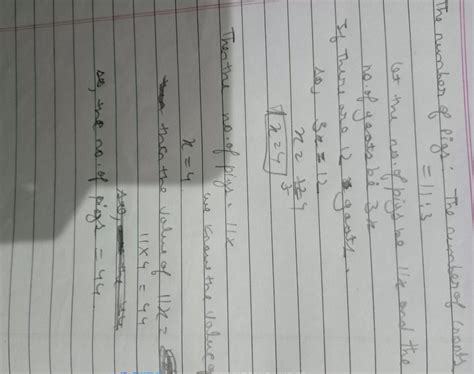 The number of pigs : The number of goats
= 11:3
let the no. of pigs be 11x and the
no. of goats be 3x
If there are 12 goats.
so, 3x = 12
x = 12 4
3
x = 4
Then the no. of pigs = 11x
we know the value of
x = 4
then the value of 11x =
11 x 4 = 44
so, the no. of pigs = 44.